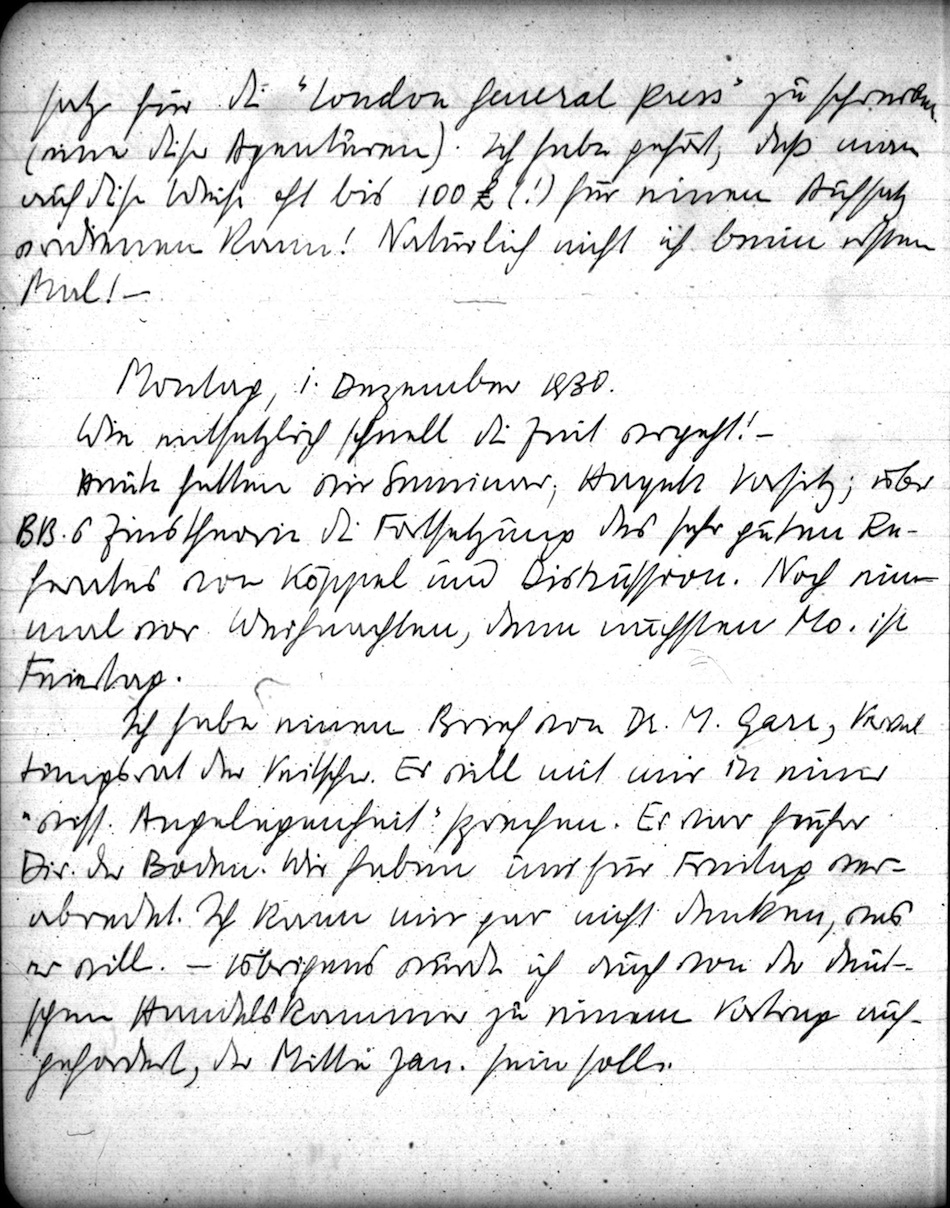 satz für die "London General Press" zu schreiben
(eine dieser Agenturen). Ich habe gehört, daß man
auf diese Weise oft bis 100 £ (!) für einen Aufsatz
verdienen kann! Natürlich nicht ich beim ersten
Mal! —
Montag, 1. Dezember 1930.
Wie entsetzlich schnell die Zeit vergeht! —
Heute hatten wir Seminar; Hayek Vorsitz; über
BB.s Zinstheorie die Fortsetzung des sehr guten Re-
ferates von Köppel und Diskussion. Noch ein-
mal vor Weihnachten, denn nächsten Mo. ist
Feiertag.
Ich habe einen Brief von Dr. M. Garr,
tungsrat der Veitscher. Er will mit mir in einer
"wiss. Angelegenheit" sprechen. Er war früher
Dir. der Boden. Wir haben uns für Freitag ver-
abredet. Ich kann mir gar nicht denken, was
er will. — Übrigens wurde ich auch von der deut-
schen Handelskammer zu einem Vortrag auf-
gefordert, der Mitte Jan. sein soll.